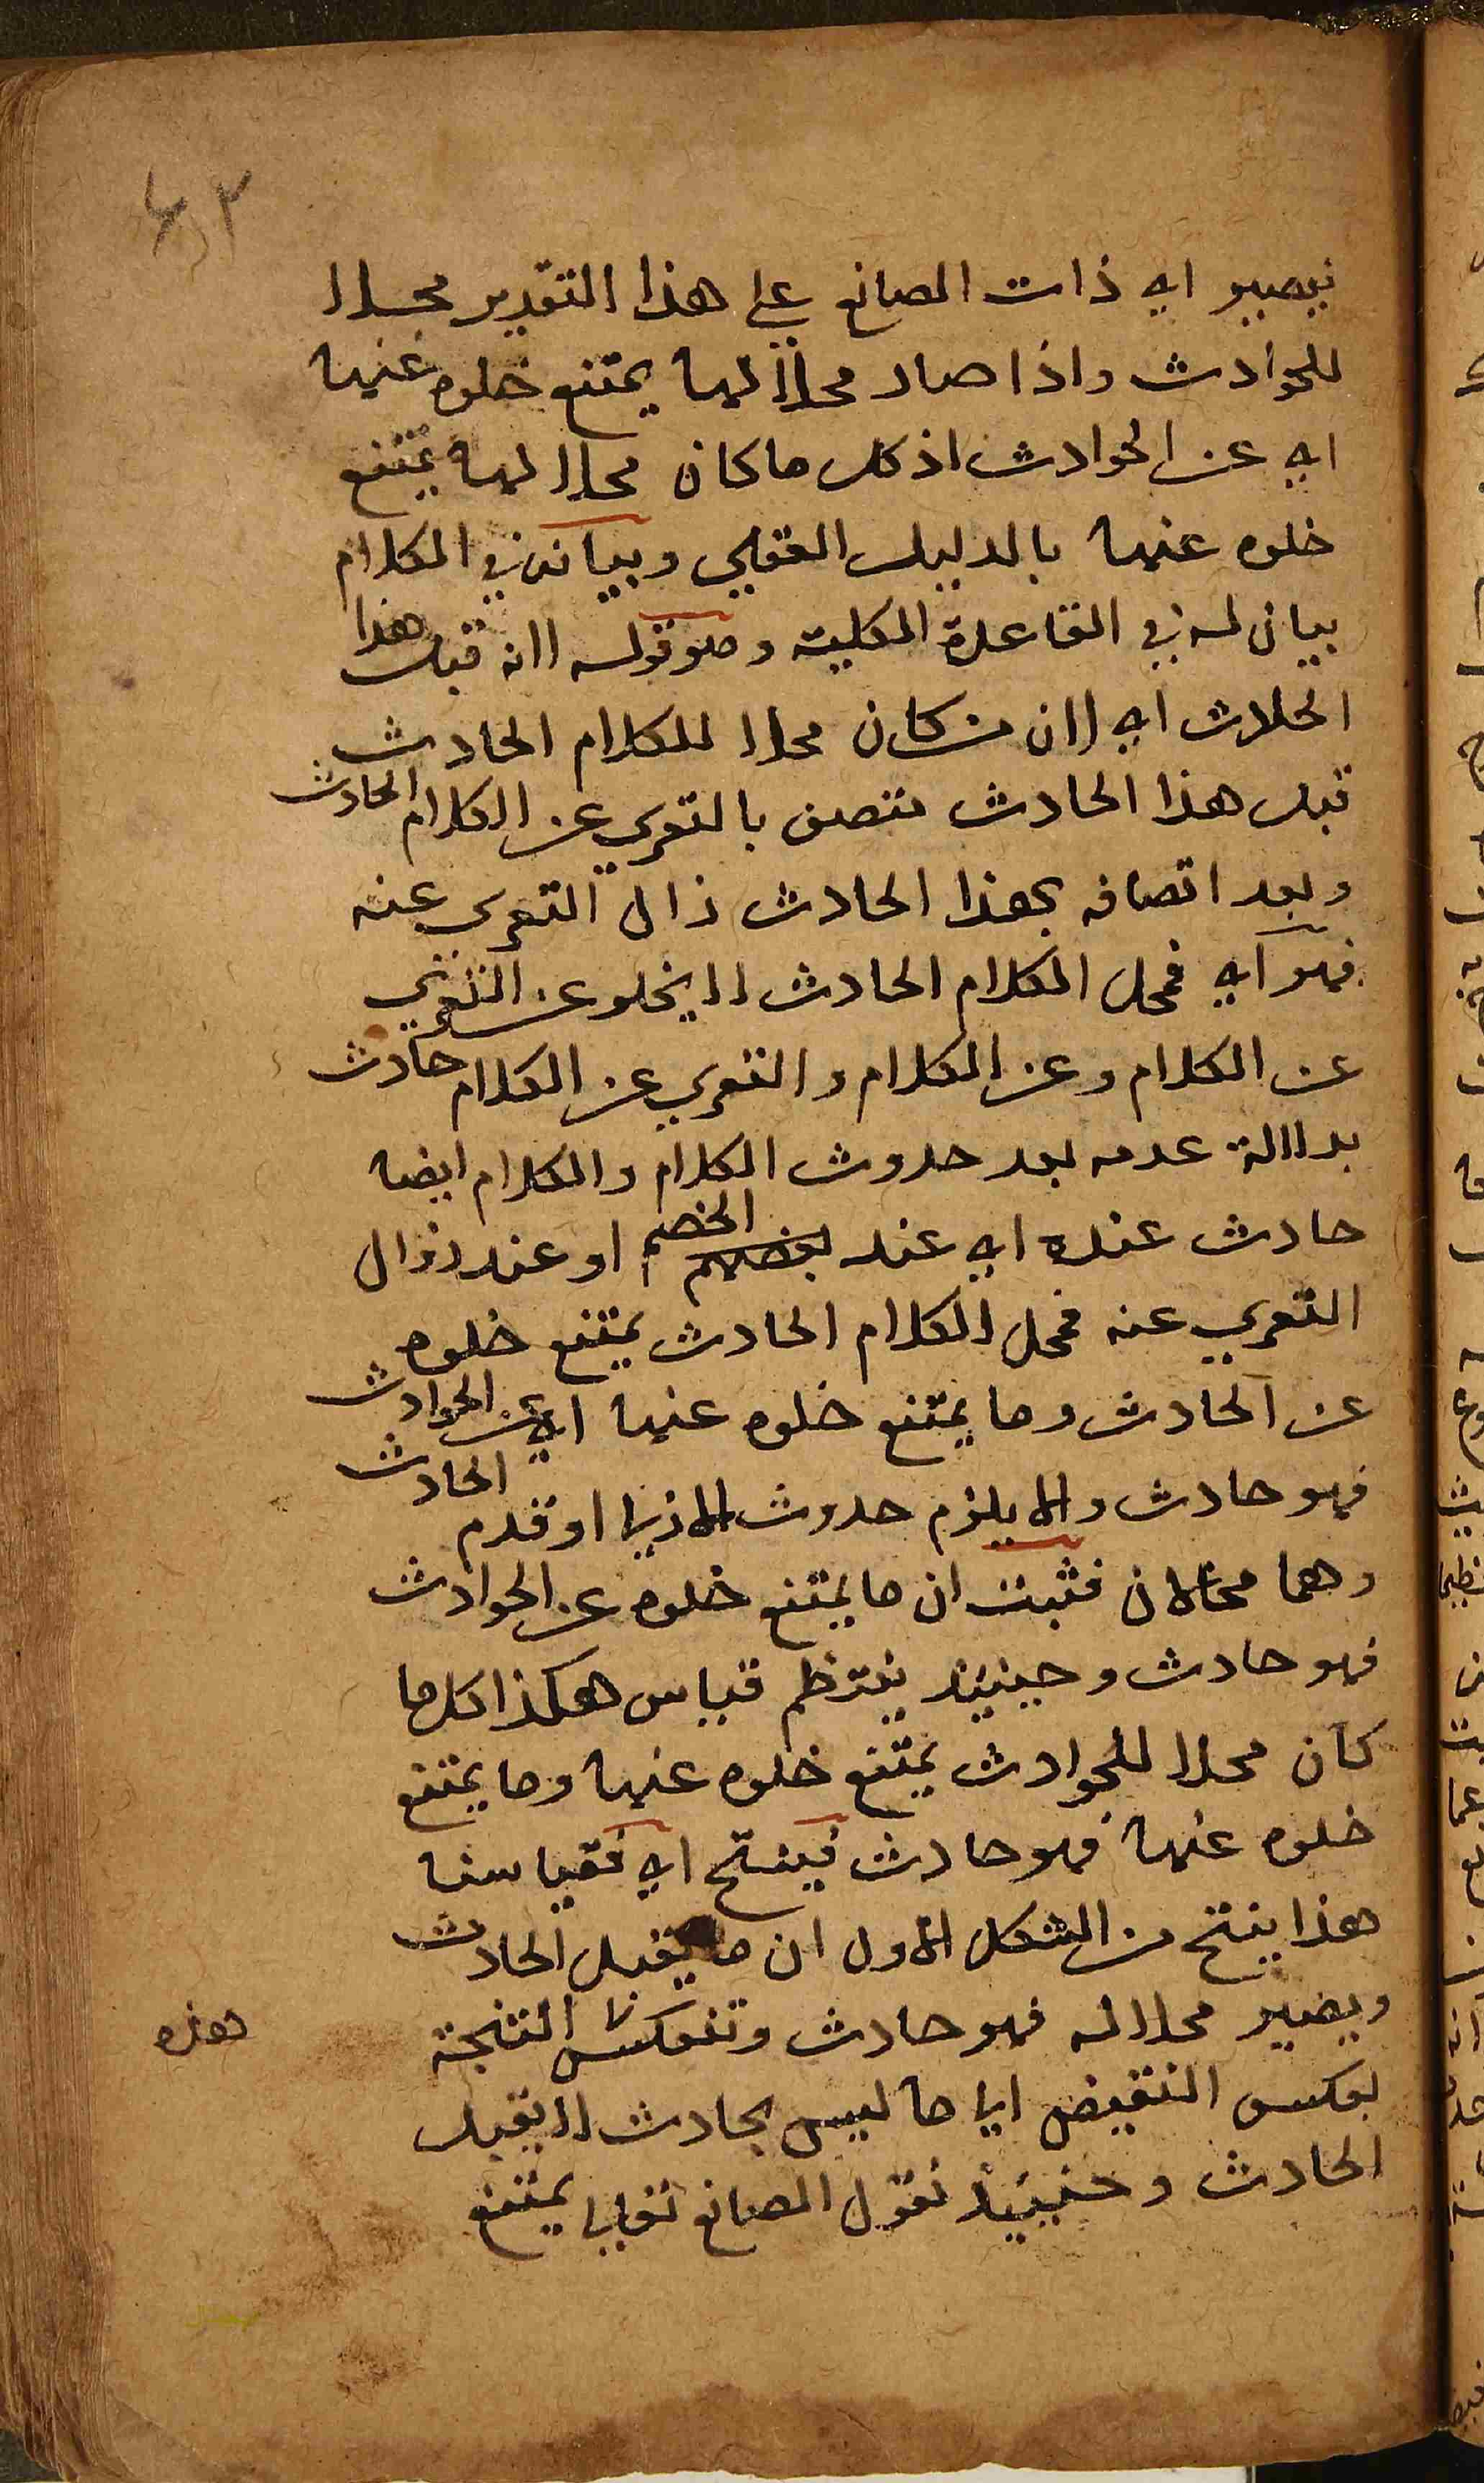 ٤٢
فيصير اي ذات الصانع على هذا التقدير محلا
للحوادث واذا صار محلا لها يمتنع خلوه عنها
اي عن الحوادث اذ كل ما كان محلا لها يمتنع
خلوه عنها بالدليل العقلي وبيانه في الكلام
بيان له في القاعدة الكلية وهو قوله لانه قبل هذا
الحادث اي لان من كان محلا للكلام الحادث
قبل هذا الحادث متصف بالتعري عن الكلام الحادث
وبعد اتصافه بهذا الحادث زال التعري عنه
فهو اي فمحل الكلام الحادث لا يخلو عن التعري
عن الكلام وعن الكلام والتعري عن الكلام حادث
بدلالة عدمه بعد حدوث الكلام والكلام ايضا
حادث عنده اي عند بعضهم الخصم او عند زوال
التعري عنه فمحل الكلام الحادث يمتنع خلوه
عن الحادث وما يمتنع خلوه عنها اي عن الحوادث
فهو حادث والا يلزم حدوث الازلي او قدم الحادث
وهما محالان فثبت ان ما يمتنع خلوه عن الحوادث
فهو حادث وحينئذ ينتظم قياس هكذا كل ما
كان محلا للحوادث يمتنع خلوه عنها وما يمتنع
خلوه عنها فهو حادث فينتج اي فقياسنا
هذا ينتج من الشكل الاول ان ما يقبل الحادث
ويصير محلا له فهو حادث وتنعكس النتيجة
هذه
بعكس النقيض الى ما ليس بحادث لا يقبل
الحادث وحينئذ نقول الصانع تعالى يمتنع